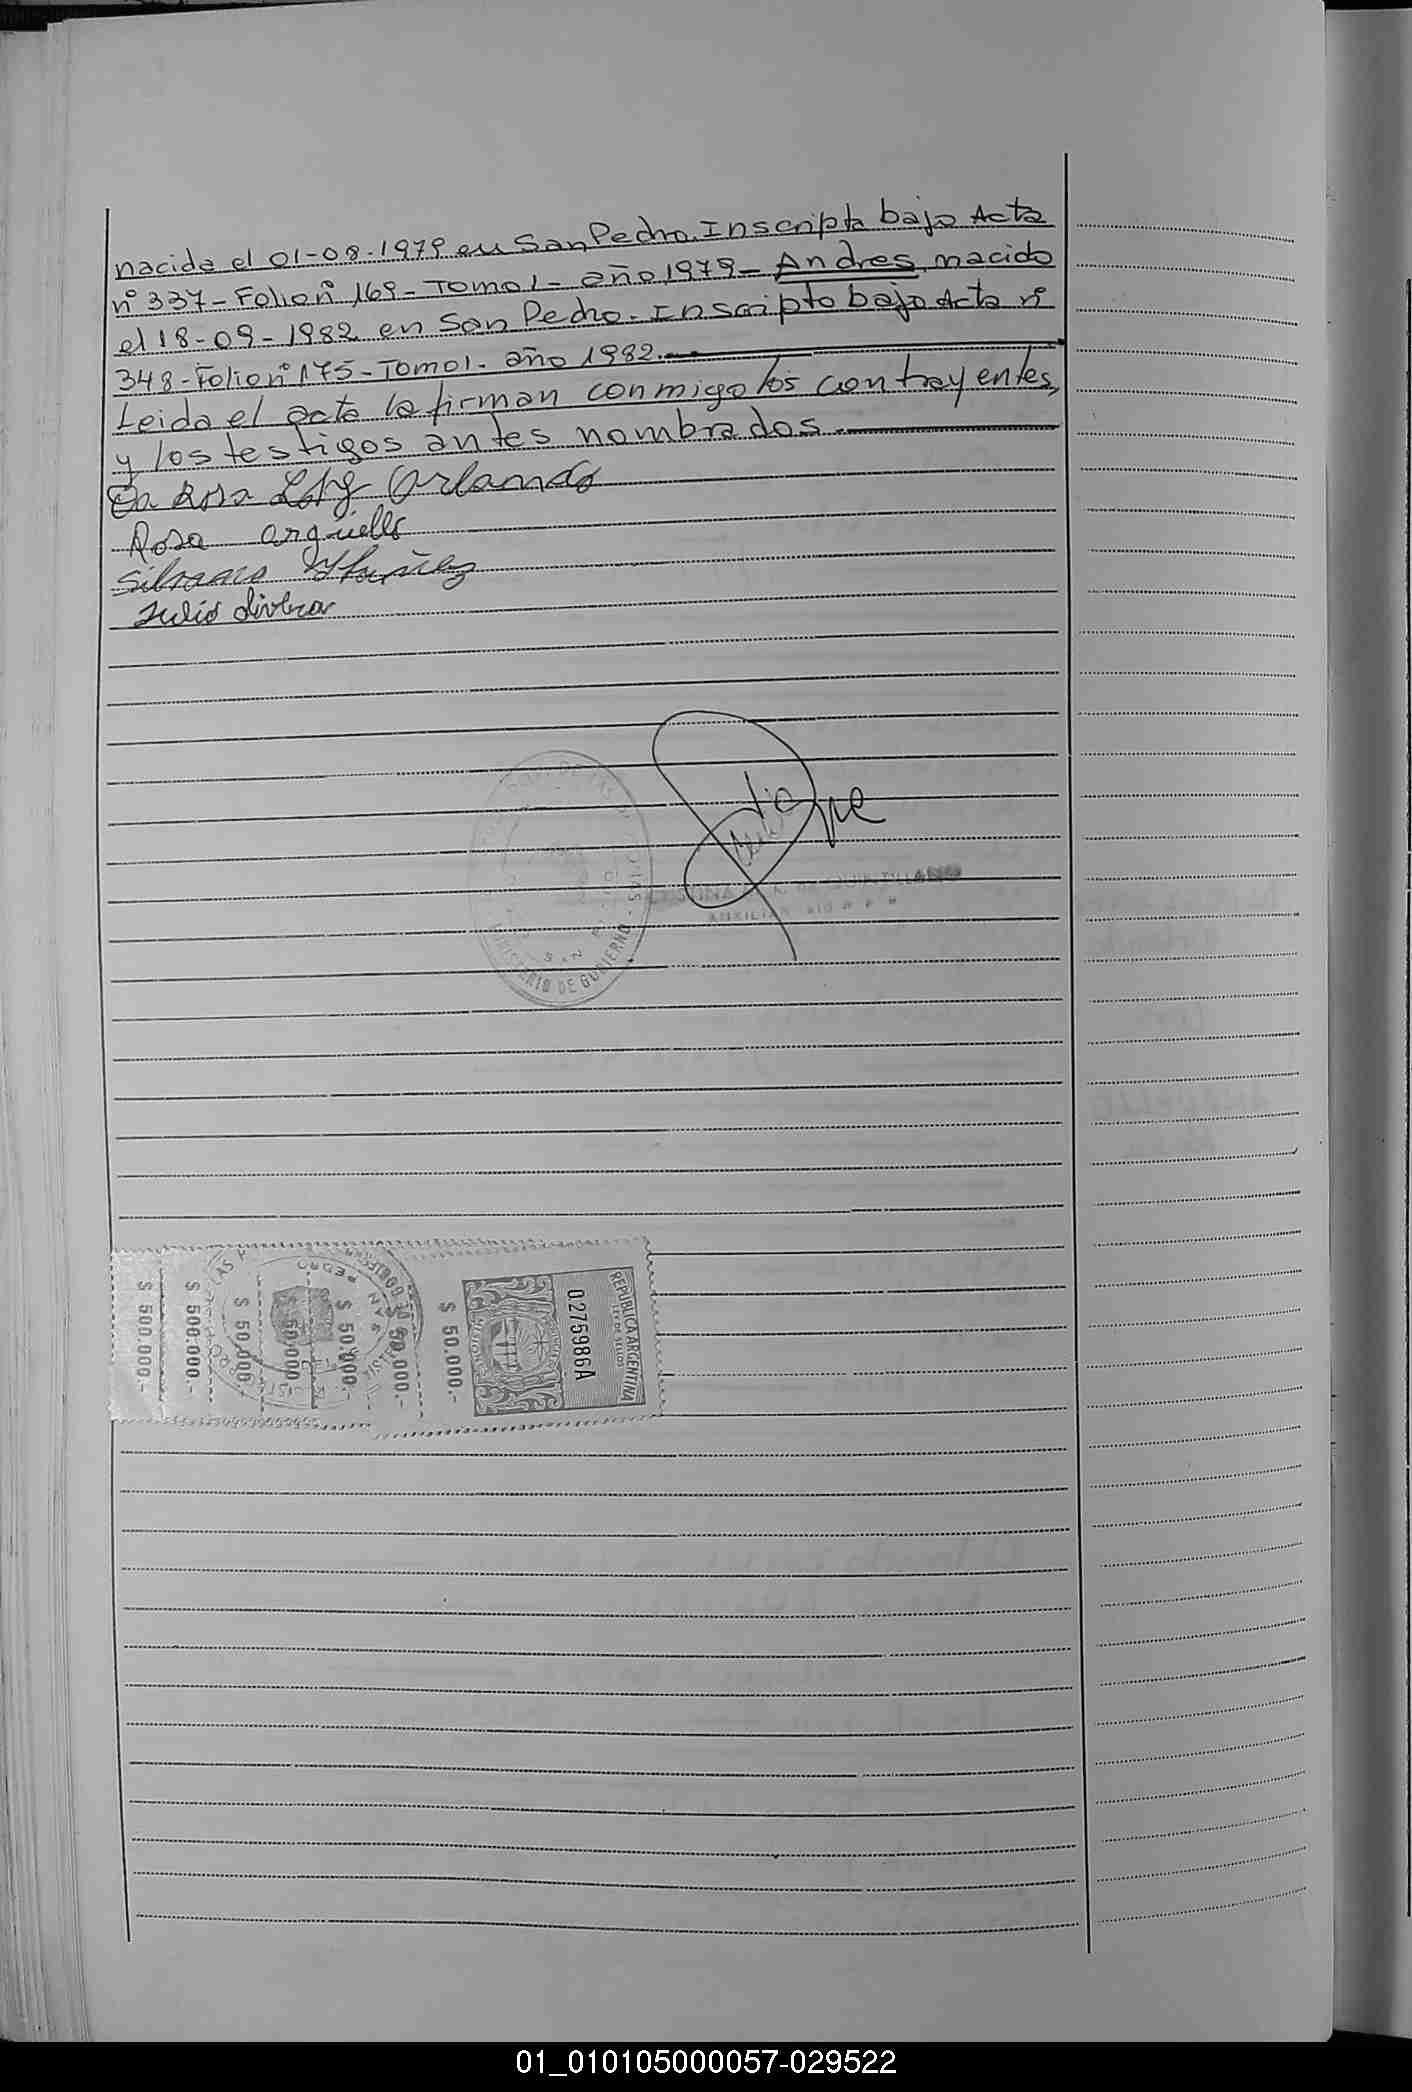 nacida el 01-08-1979 en San Pedro. Inscripta bajo Acta
nº 337-Folio nº 169-Tomo 1- año 1979- Andres, nacido
el 18-09-1982 en San Pedro. Inscripto bajo Acta nº
348-Folio nº 175-Tomo 1- año 1982.
Leida el acta la firman conmigo los contrayentes,
y los testigos antes nombrados.
Da Rosa Orlando
Rosa argüello
Silvano
Julio
SAN
MINISTERIO DE GOBIERNO
AUXILIAR
REPUBLICA ARGENTINA
LEY DE SELLOS
0275986A
$ 50.000.-
$ 50.000.-
$ 50.000.-
$ 50.000.-
$ 50.000.-
$ 500.000.-
$ 500.000.-
SAN PEDRO
01_010105000057-029522